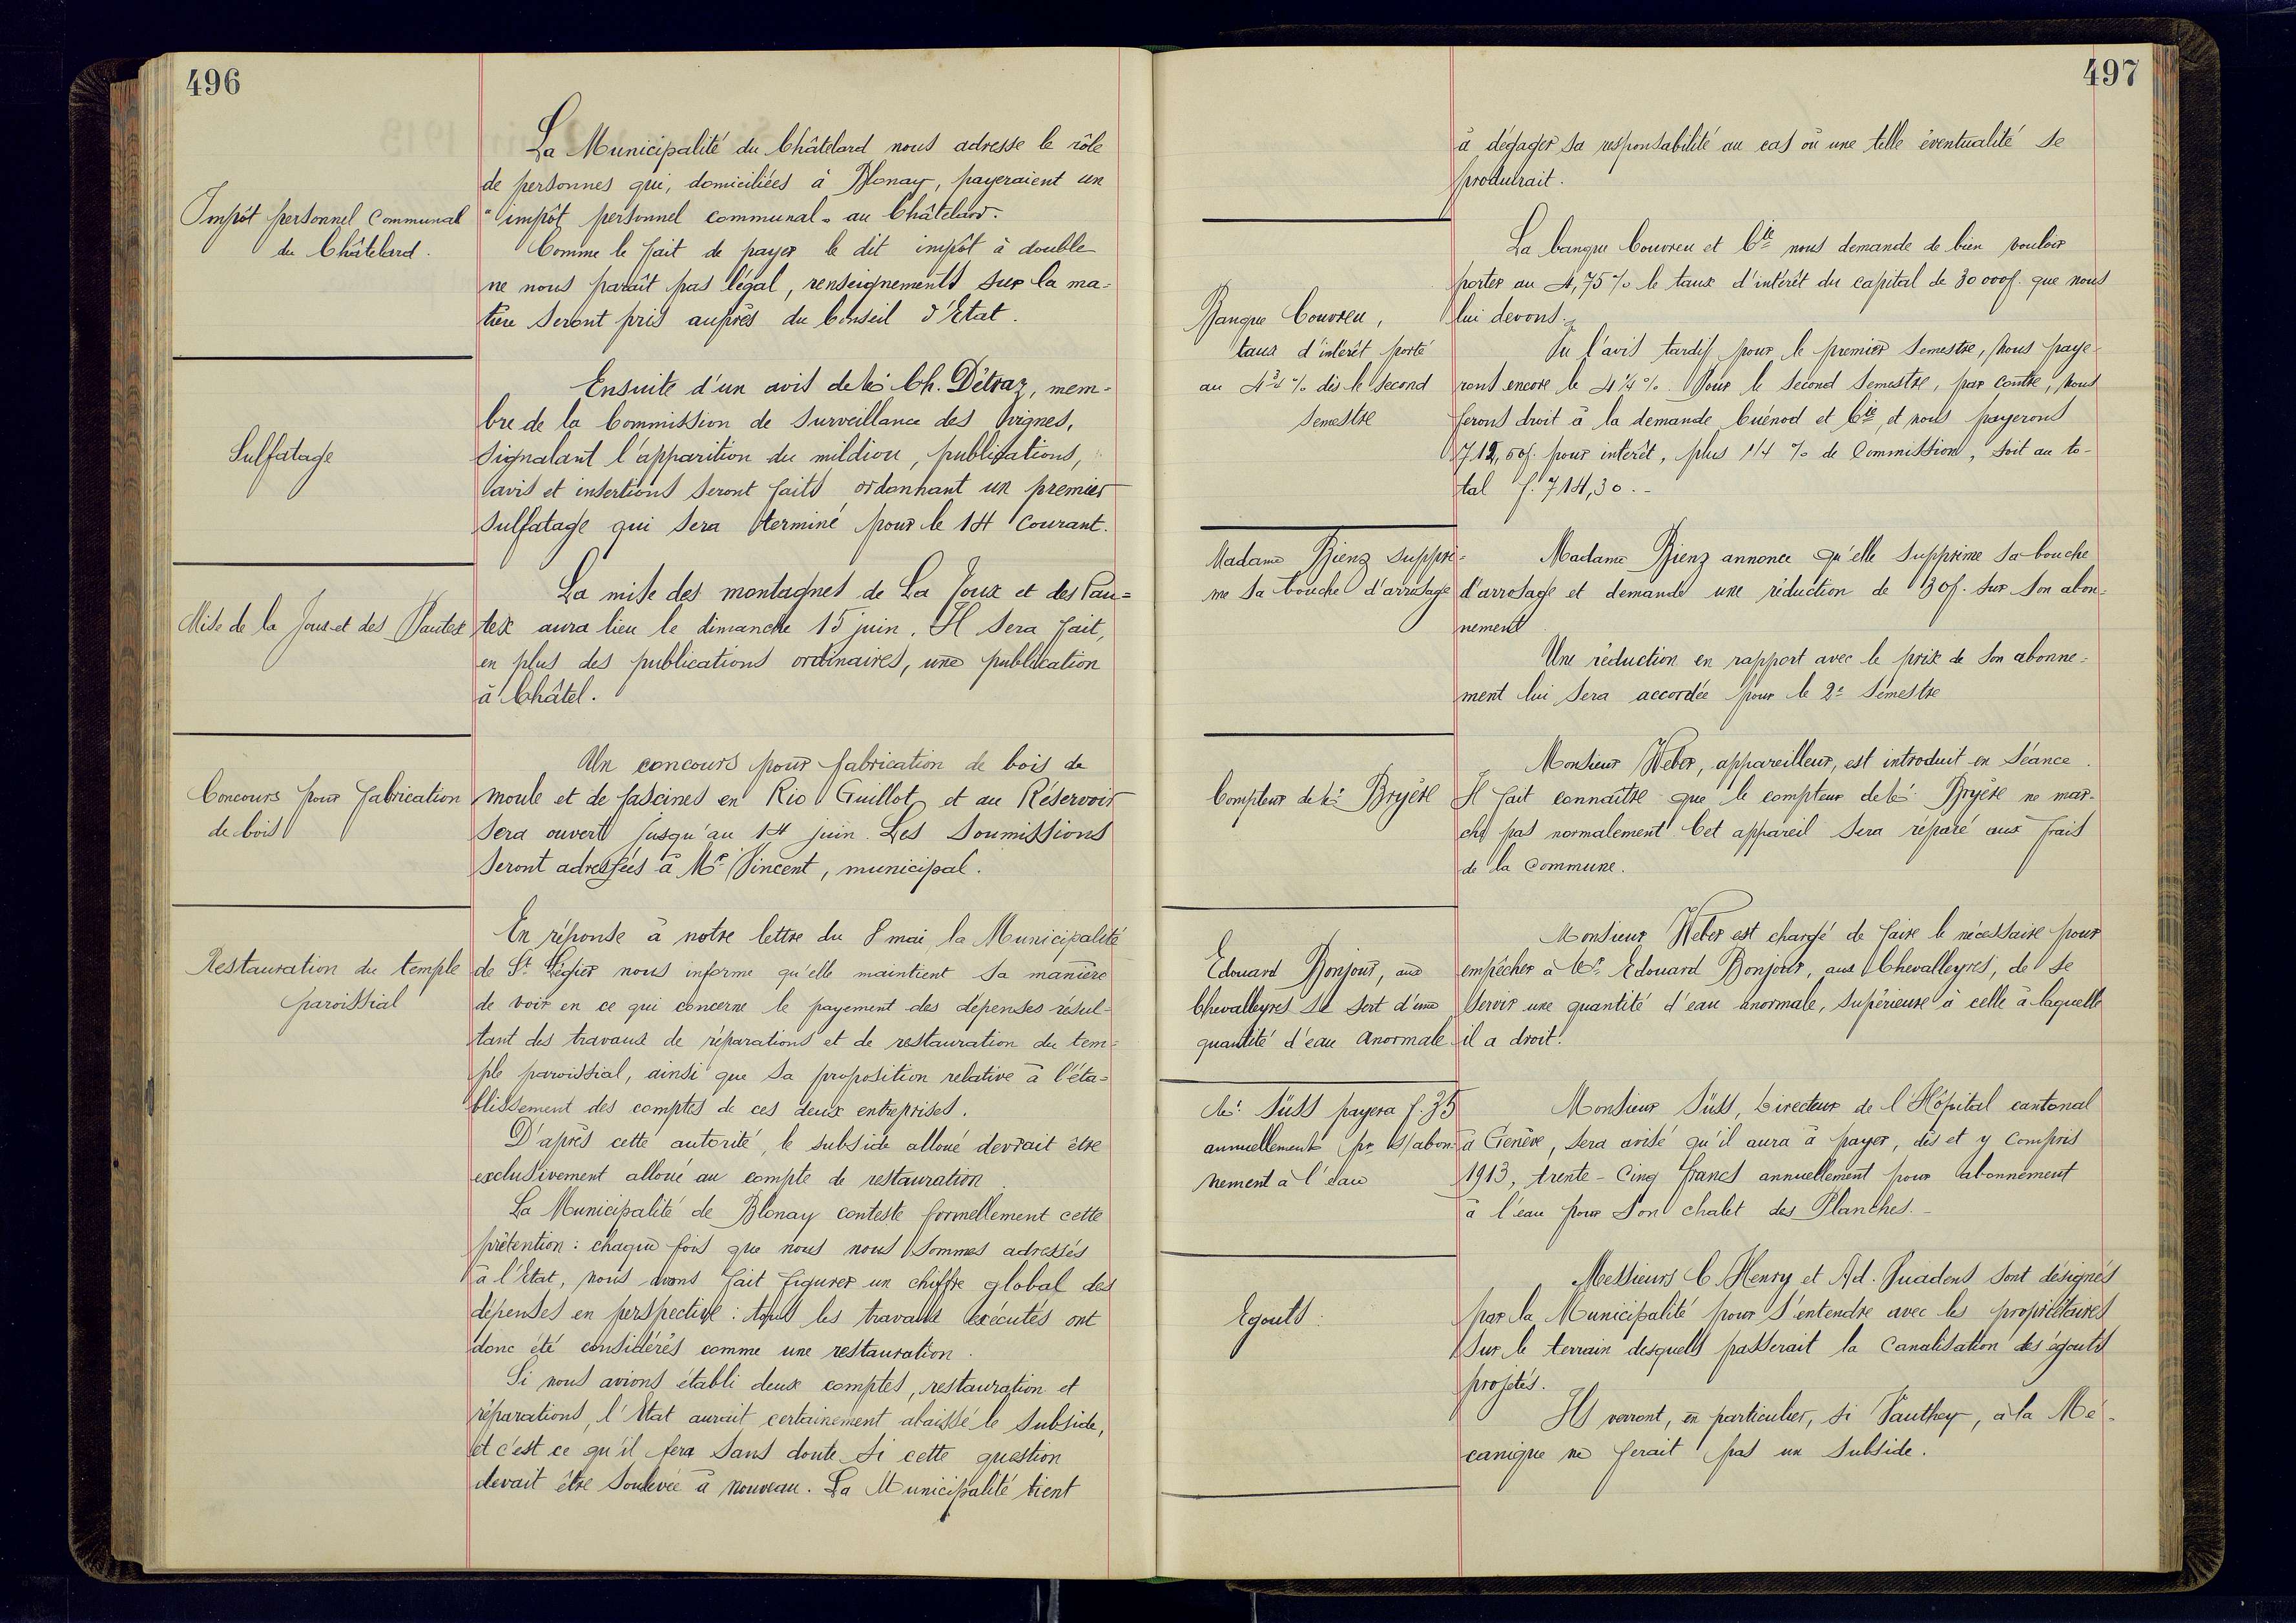 496
La Municipalité du Châtelard nous adresse le rôle
de personnes qui, domiciliées à Blonay, payeraient un
Impôt personnel communal
du Châtelard.
"impôt personnel communal" au Châtelard.
Comme le fait de payer le dit impôt à double
ne nous paraît pas légal, renseignements sur la ma-
tière seront pris auprès du Conseil d'Etat.
Ensuite d'un avis de Mr Ch. Détraz, mem-
bre de la Commission de surveillance des vignes,
Sulfatage
signalant l'apparition du mildiou, publications,
avis et insertions seront faits ordonnant un premier
sulfatage qui sera terminé pour le 14 courant.
La mise des montagnes de La Joux et des Pau-
Mise de la Joux et des Pautex
tex aura lieu le dimanche 15 juin. Il sera fait,
en plus des publications ordinaires, une publication
à Châtel.
Un concours pour fabrication de bois de
Concours pour fabrication
de bois
moule et de fascines en Rio Guillot et au Réservoir
sera ouvert jusqu'au 14 juin. Les soumissions
seront adressées à Mr Vincent, municipal.
En réponse à notre lettre du 8 mai, la Municipalité
Restauration du temple
paroissial
de St Légier nous informe qu'elle maintient sa manière
de voir en ce qui concerne le payement des dépenses résul-
tant des travaux de réparations et de restauration du tem-
ple paroissial, ainsi que sa proposition relative à l'éta-
blissement des comptes de ces deux entreprises.
D'après cette autorité, le subside alloué devrait être
exclusivement alloué au compte de restauration.
La Municipalité de Blonay conteste formellement cette
prétention: chaque fois que nous nous sommes adressés
à l'Etat, nous avons fait figurer un chiffre global des
dépenses en perspective: tous les travaux exécutés ont
donc été considérés comme une restauration.
Si nous avions établi deux comptes, restauration et
réparations, l'Etat aurait certainement abaissé le subside,
et c'est ce qu'il fera sans doute si cette question
devait être soulevée à nouveau. La Municipalité tient
497
à dégager sa responsabilité au cas où une telle éventualité se
produirait.
La banque Couvreu et Cie nous demande de bien vouloir
porter au 4,75% le taux d'intérêt du capital de 30 000f. que nous
lui devons.
Banque Couvreu,
taux d'intérêt porté
au 4 3/4 % dès le second
semestre
Vu l'avis tardif pour le premier semestre, nous paye-
rons encore le 4 1/4 %. Pour le second semestre, par contre, nous
ferons droit à la demande Cuénod et Cie et nous payerons
712,50f. pour intérêt, plus 1/4 % de Commission, soit au to-
tal f. 714,30.-
Madame Rienz suppri-
me sa bouche d'arrosage
Madame Rienz annonce qu'elle supprime sa bouche
d'arrosage et demande une réduction de 30f. sur son abon-
nement
Une réduction en rapport avec le prix de son abonne-
ment lui sera accordée pour le 2e semestre
Monsieur Weber, appareilleur, est introduit en séance.
Compteur de Mr Bryère
Il fait connaître que le compteur de Mr Bryère ne mar-
che pas normalement Cet appareil sera réparé aux frais
de la Commune.
Monsieur Weber est chargé de faire le nécessaire pour
Edouard Bonjour, aux
Chevalleyres se sert d'une
quantité d'eau anormale
empêcher à Mr Edouard Bonjour, aux Chevalleyres, de se
servir une quantité d'eau anormale, supérieure à celle à laquelle
il a droit.
Mr Süss payera f. 35
annuellement pr s/abon-
nement à l'eau
Monsieur Süss, Directeur de l'Hôpital cantonal
à Genève, sera avisé qu'il aura à payer, dès et y compris
1913, trente-cinq francs annuellement pour abonnement
à l'eau pour son chalet des Planches.-
Messieurs C. Henry et Ad. Juadens sont désignés
Egouts.
par la Municipalité pour s'entendre avec les propriétaires
sur le terrain desquels passerait la canalisation des égouts
projetés.
Ils verront, en particulier, si Vauthey, à la Mé-
canique ne ferait pas un subside.